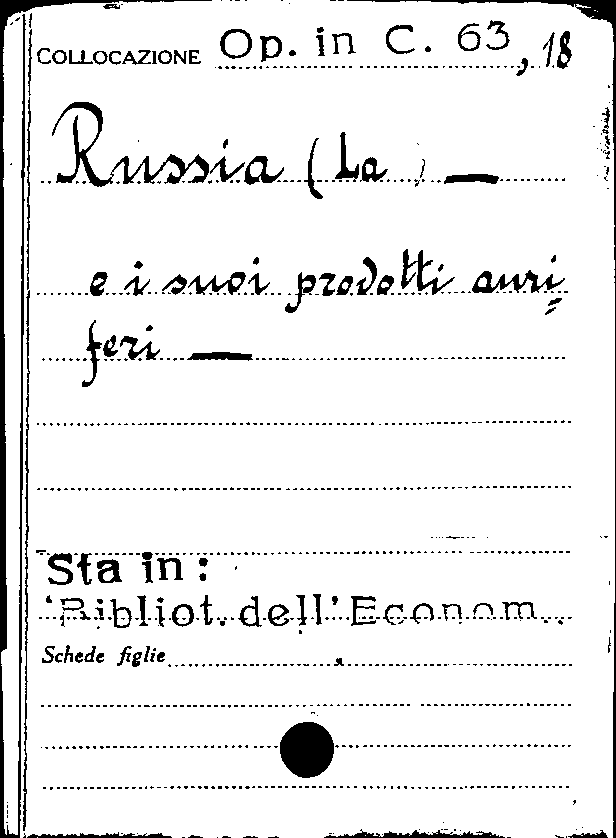 COLLOCAZIONE Op. in C. 63, 18
Russia (La) —
e i suoi prodotti auri=
feri —
Sta in:
'Bibliot. dell'Econom..
Schede figlie